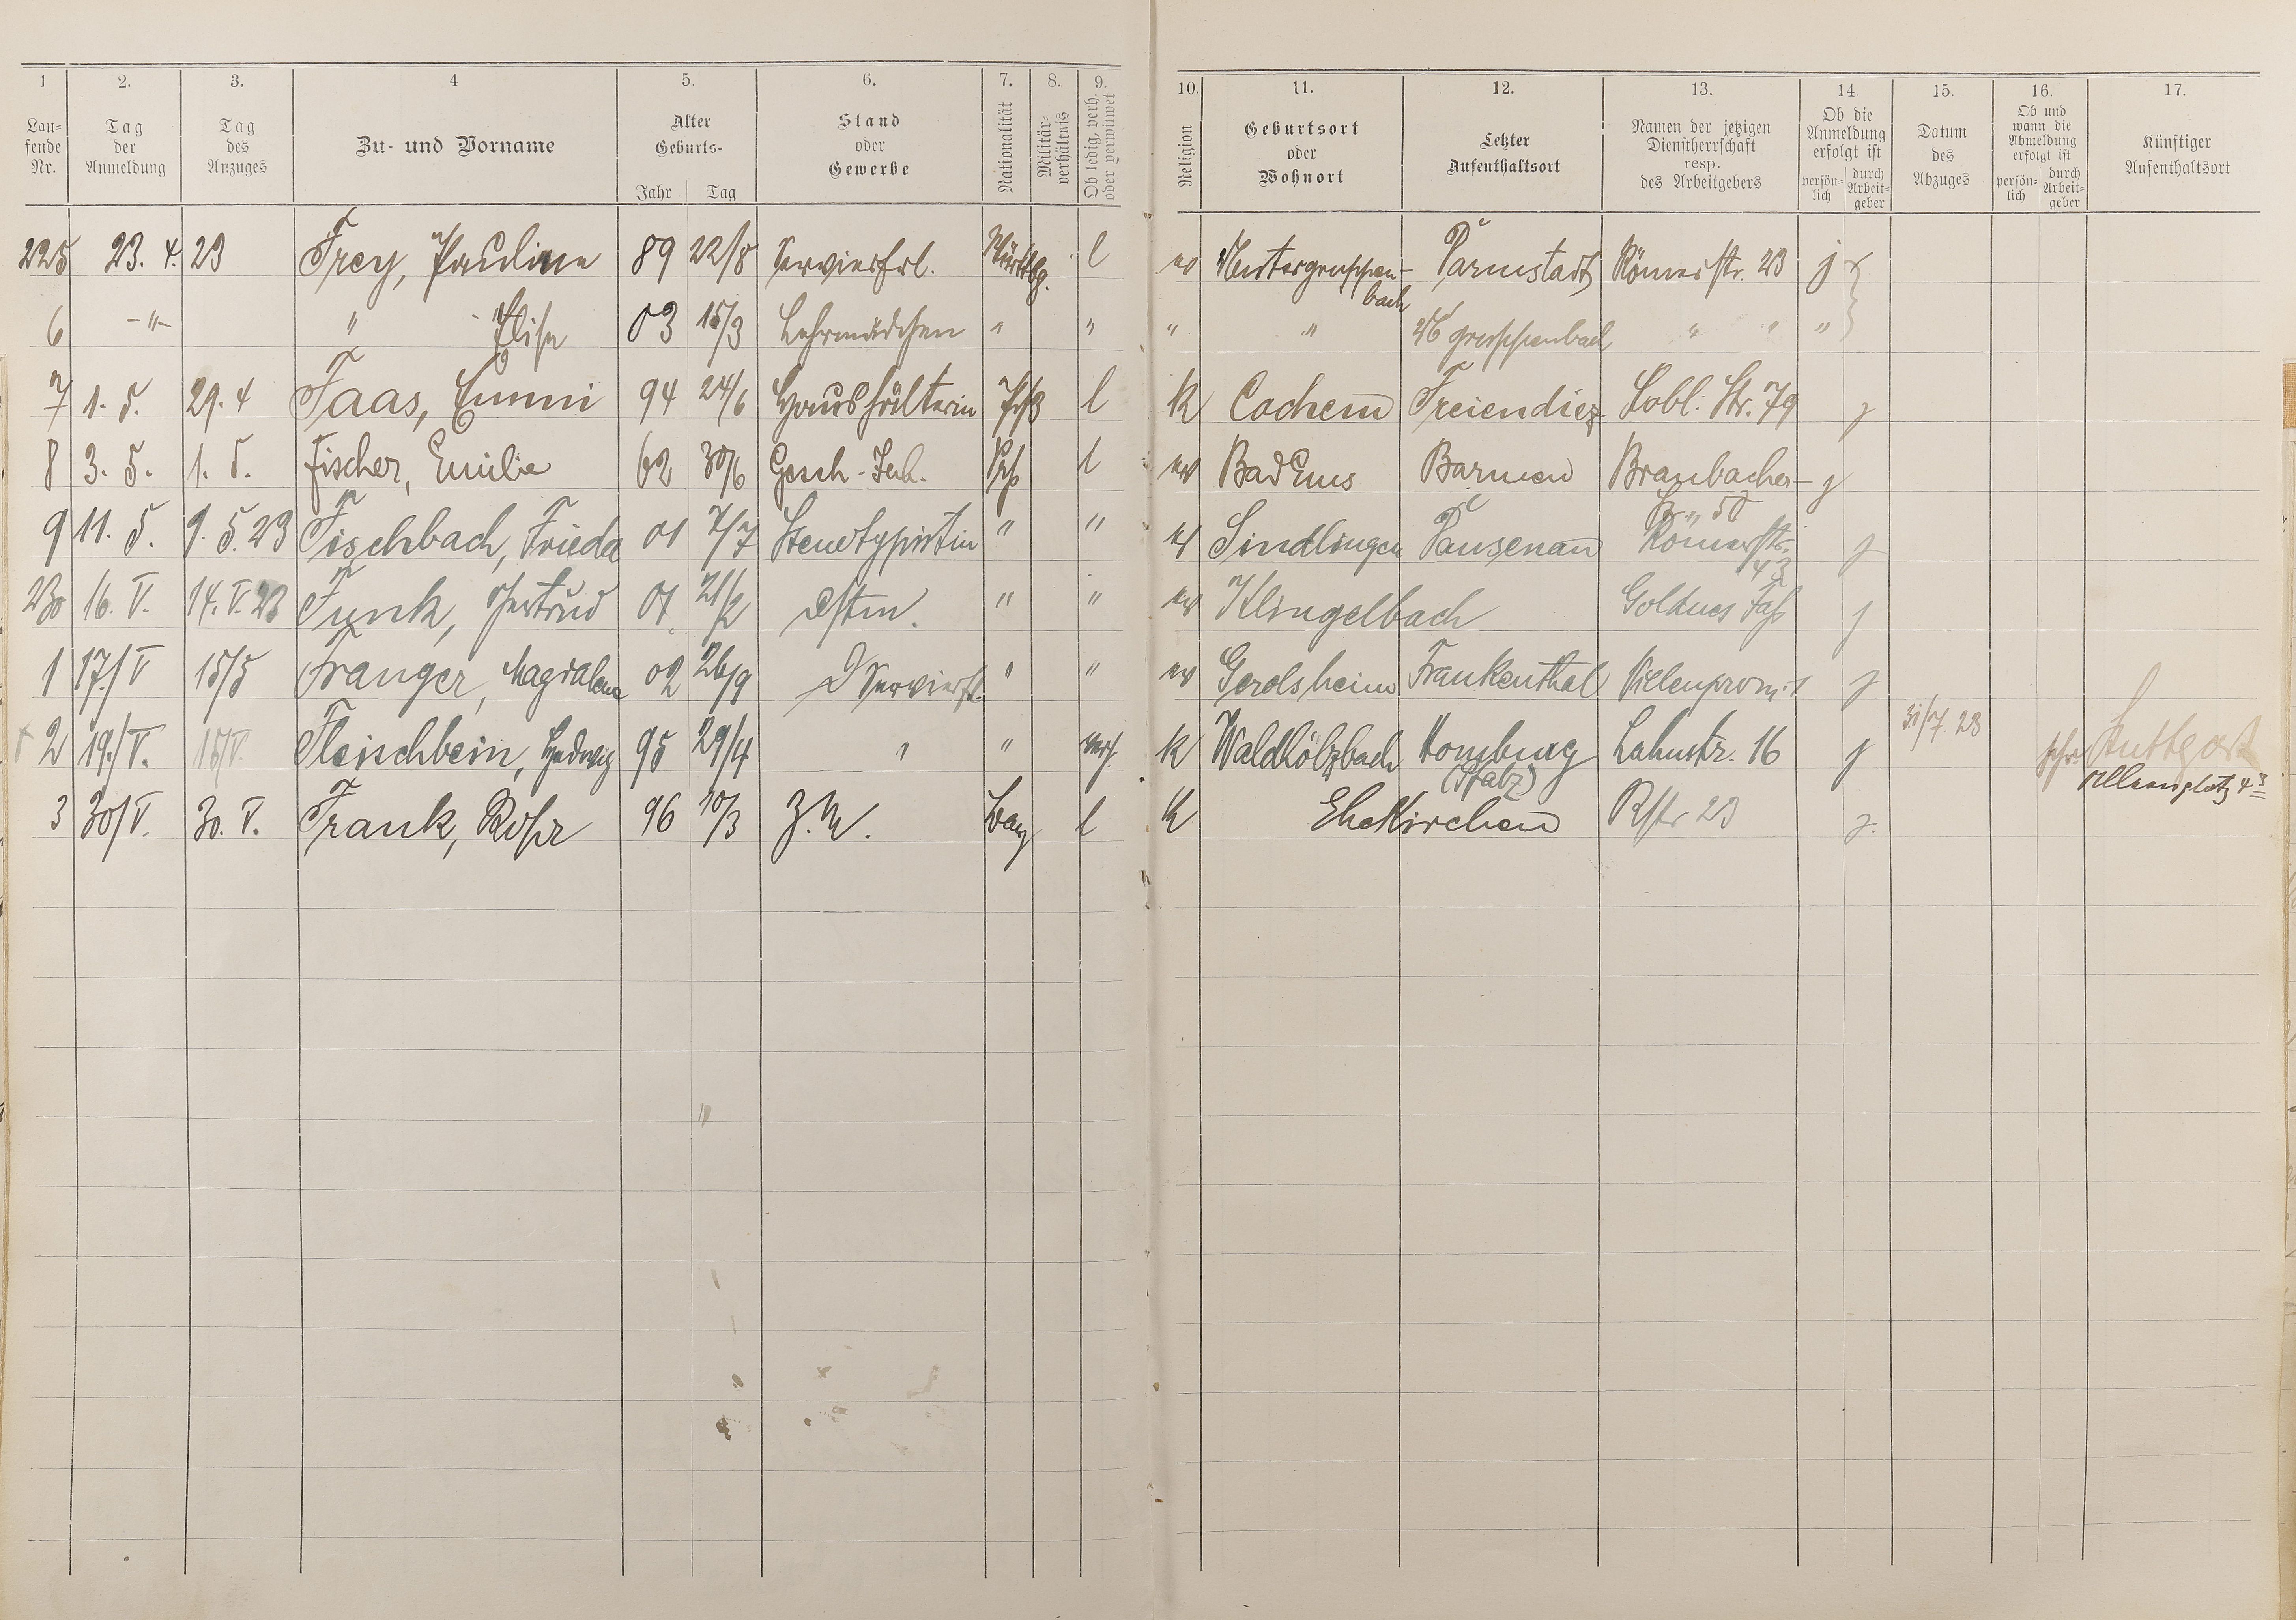 1 2. 3. 4 5. 6. 7. 8. 9. 10. 11. 12. 13. 14. 15. 16. 17.
Lau=
fende
Nr.
Tag
der
Anmeldung
Tag
des
Anzuges
Zu- und Vorname
Alter
Geburts-
Jahr Tag
Stand
oder
Gewerbe
Nationalität
Militär-
verhältnis
Ob ledig, verh.
oder verwitwet
Religion
Geburtsort
oder
Wohnort
Letzter
Aufenthaltsort
Namen der jetzigen
Dienstherrschaft
resp.
des Arbeitgebers
Ob die
Anmeldung
erfolgt ist
persön-
lich
durch
Arbeit-
geber
Datum
des
Abzuges
Ob und
wann die
Abmeldung
erfolgt ist
persön-
lich
durch
Arbeit-
geber
Künftiger
Aufenthaltsort
225 23. 4. 23 Frey, Pauline 89 22/8 Servierfrl. Württbg. l ev Untergruppen-
bach Darmstadt Römerstr. 23 j
6 -"- " Elise 03 15/3 Lehrmädchen " " " " gruppenbach " " "
7 1. 5. 29. 4 Faas, Emmi 94 24/6 Haushälterin l k Cochem Freiendiez Kobl. Str. 79 j
8 3. 5. 1. 5. Fischer, Emilie 62 30/6 Gesch-Inh. l ev Bad Ems Barmen Braubacher- j
Str. 50
9 11. 5. 9. 5. 23 Fischbach, Frieda 01 7/7 Stenotypistin " " ev Sindlingen Dausenau Römerstr.
43 j
230 16. V. 14. V. 23 Funk, Gertrud 01 21/2 Dstm. " " ev Klingelbach Goldnes Faß j
1 17./V 15/5 Franger, Magdalena 02 26/9 Servierfrl. " " ev Gerolsheim Frankenthal Villenprom. 1 j
2 19./V. 15/V. Fleischbein, Hedwig 95 29/4 " " verh. k Waldhölzbach Homburg
(Pfalz) Lahnstr. 16 j 31/7. 23 Stuttgart
3 30/V. 30. V. Frank, Rosa 96 10/3 Z. M. bay l k Ehekirchen Rstr 23 j.